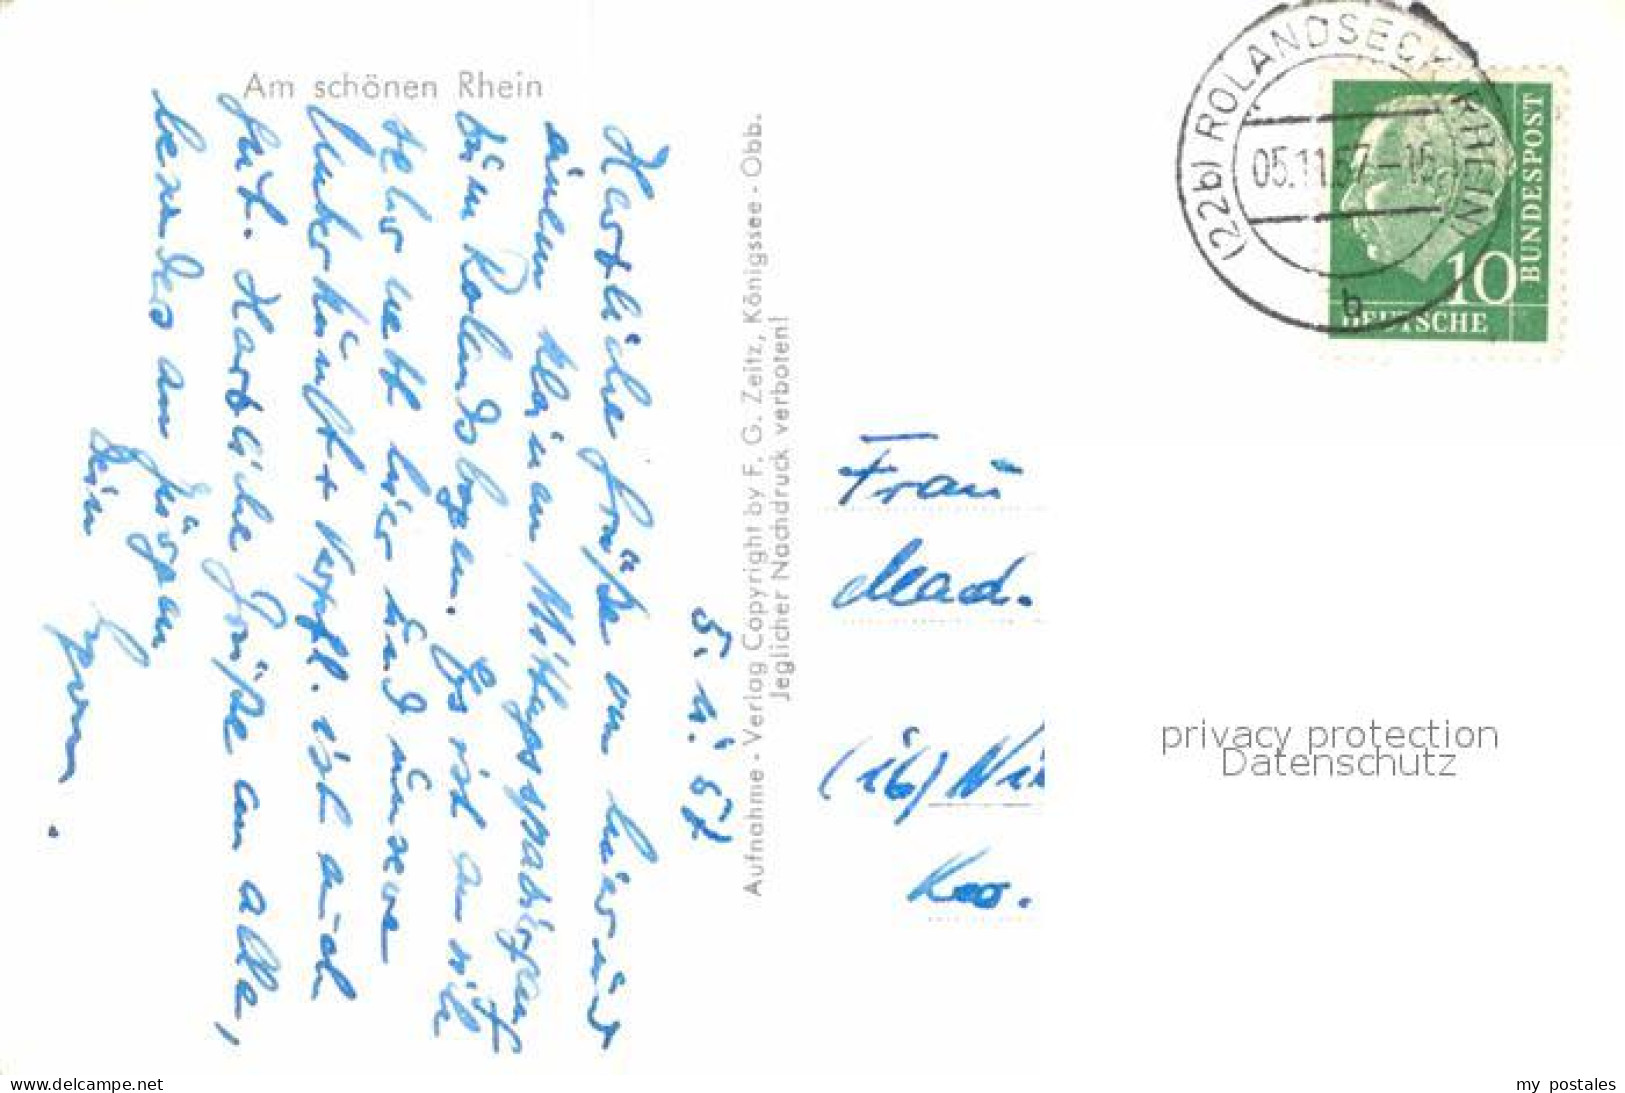 Am schönen Rhein
5. 11. 57
Herzliche Grüße von hier und
einem kleinen Mittagsspaziergang
zum Rolandsbogen. Es ist an sich
sehr nett hier und unsere
Unterkunft + Verpfl. ist auch
gut. Herzliche Grüße an alle,
besonders an Jürgen
Dein
Aufnahme - Verlag Copyright by F. G. Zeitz, Königssee - Obb.
Jeglicher Nachdruck verboten!
(22b) ROLANDSECK (RHEIN)
05.11.57-16
b
10
DEUTSCHE
BUNDESPOST
Frau
Mad.
(16) Ni
Krs.
privacy protection
Datenschutz
www.delcampe.net
my_postales